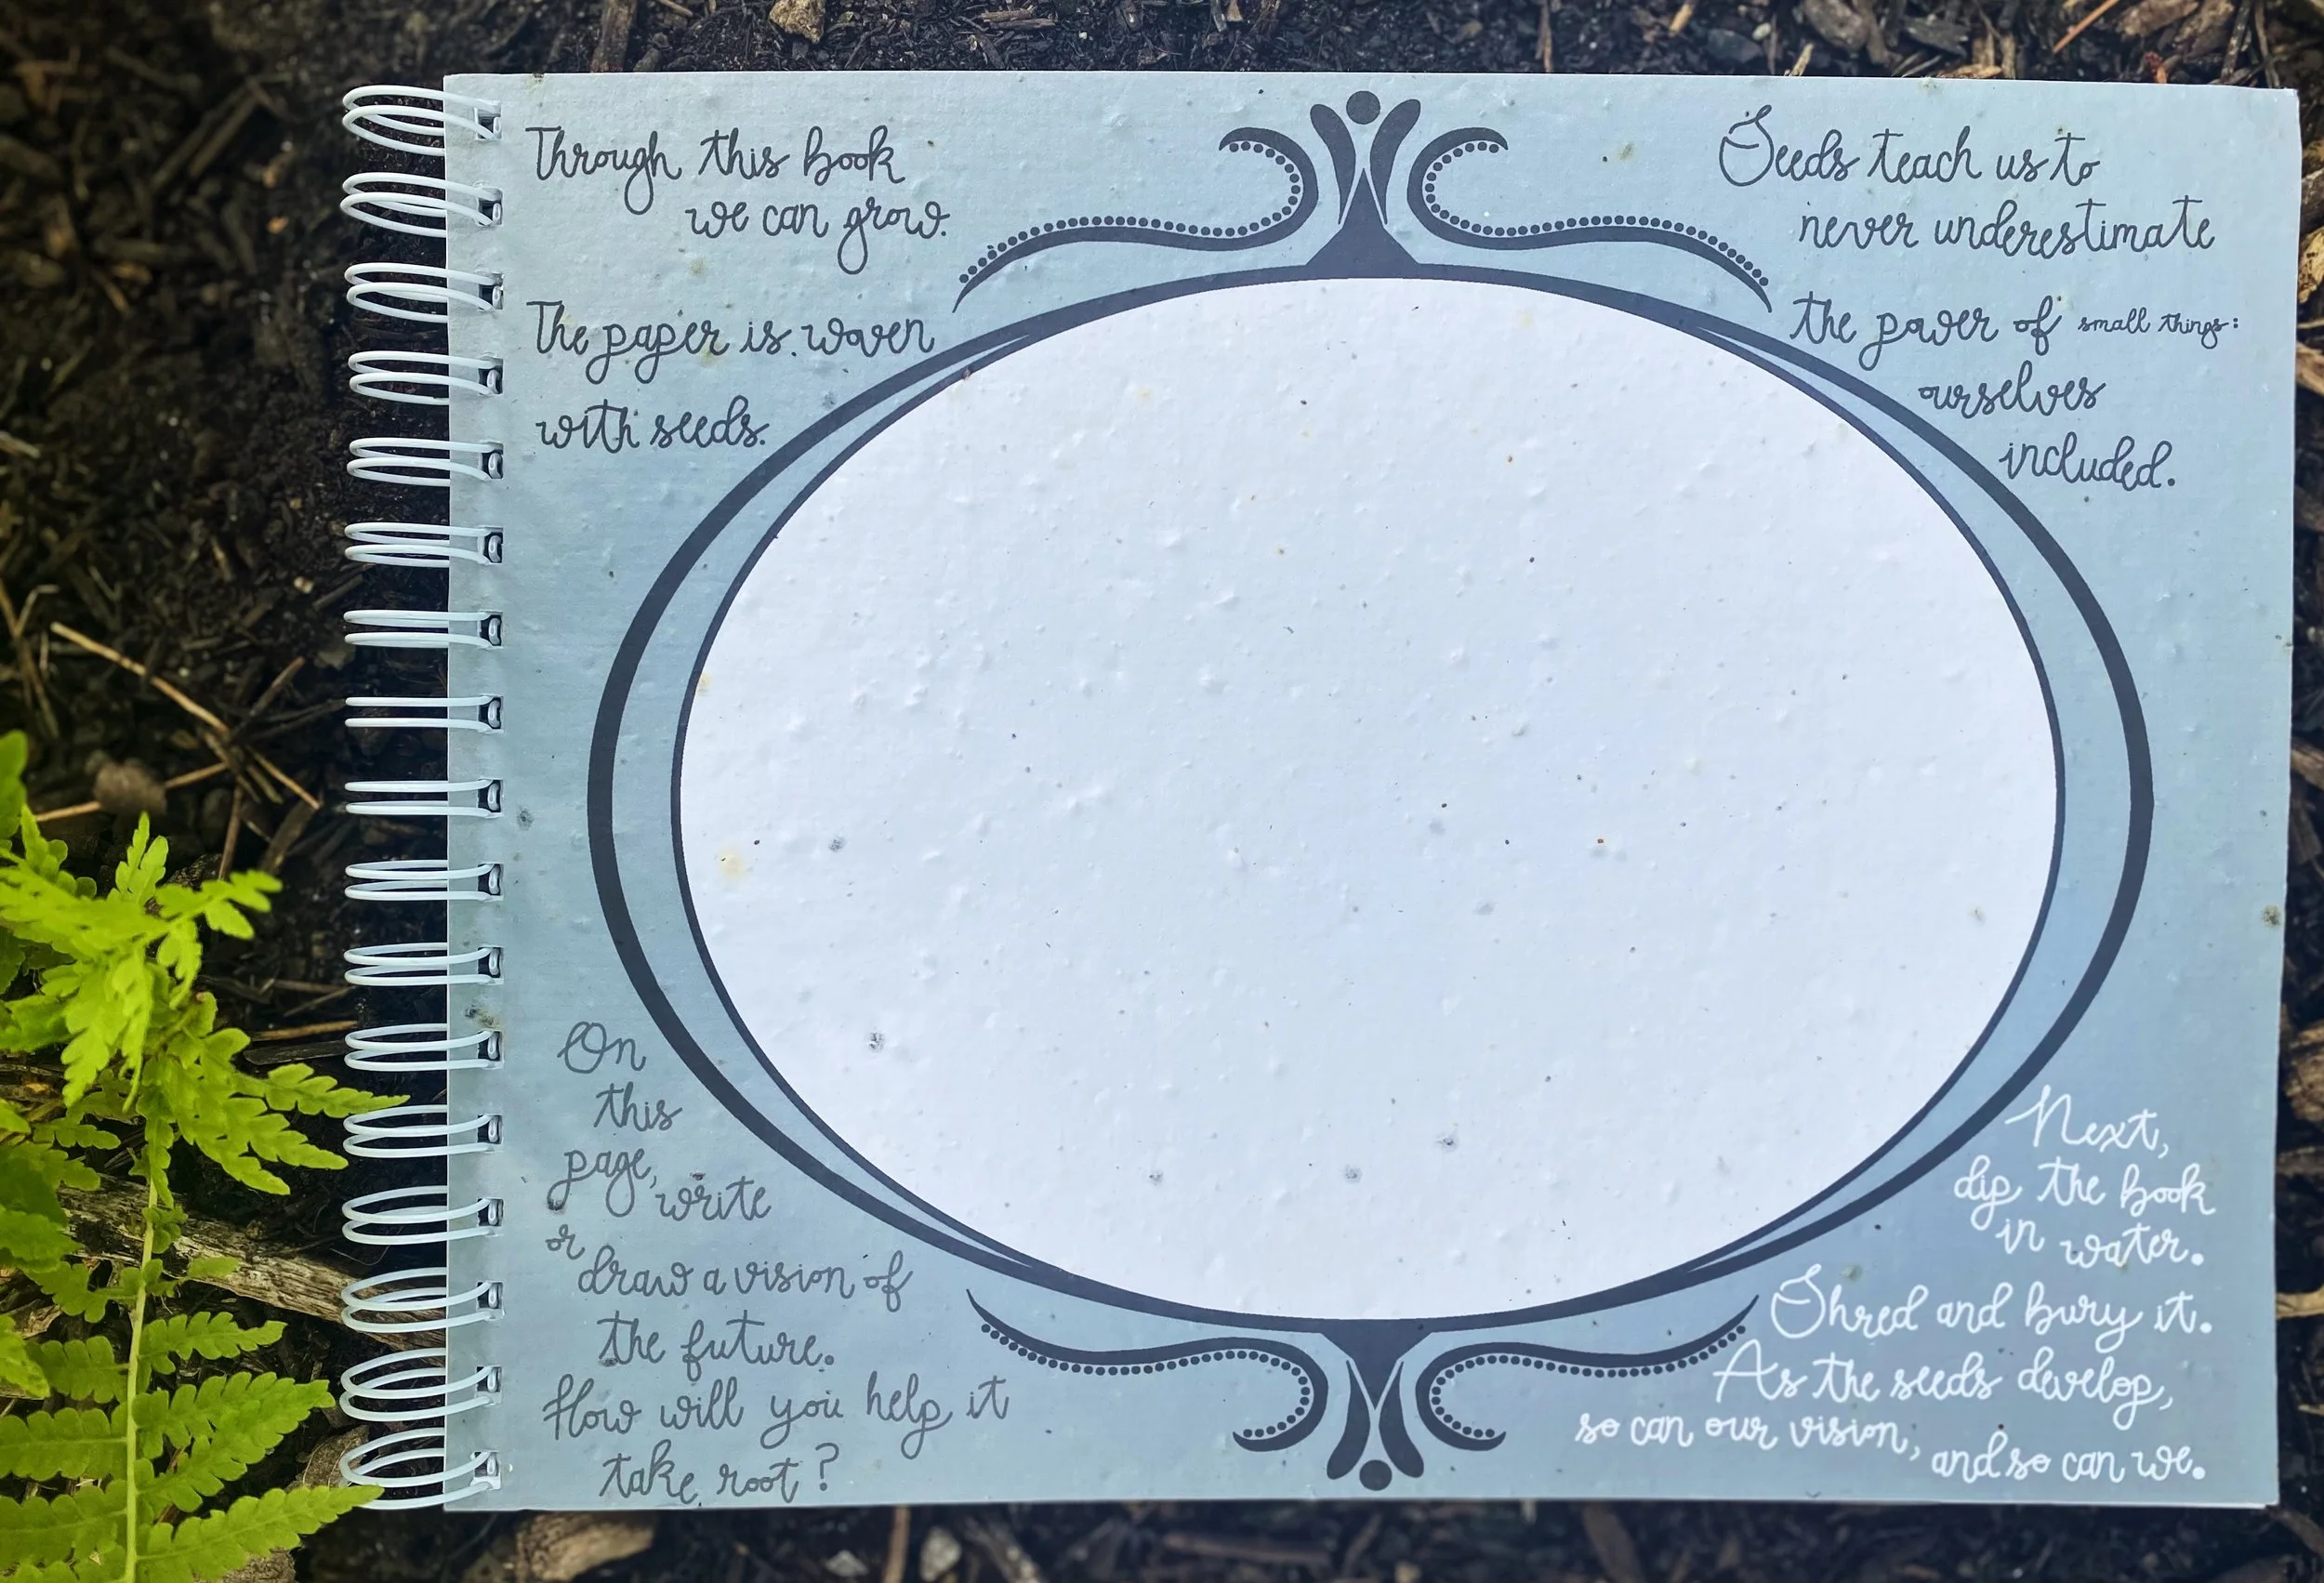 Through this book
we can grow.
The paper is woven
with seeds.
Seeds teach us to
never underestimate
the power of small things:
ourselves
included.
On
this
page, write
or
draw a vision of
the future.
How will you help it
take root?
Next,
dip the book
in water.
Shred and bury it.
As the seeds develop,
so can our vision, and so can we.